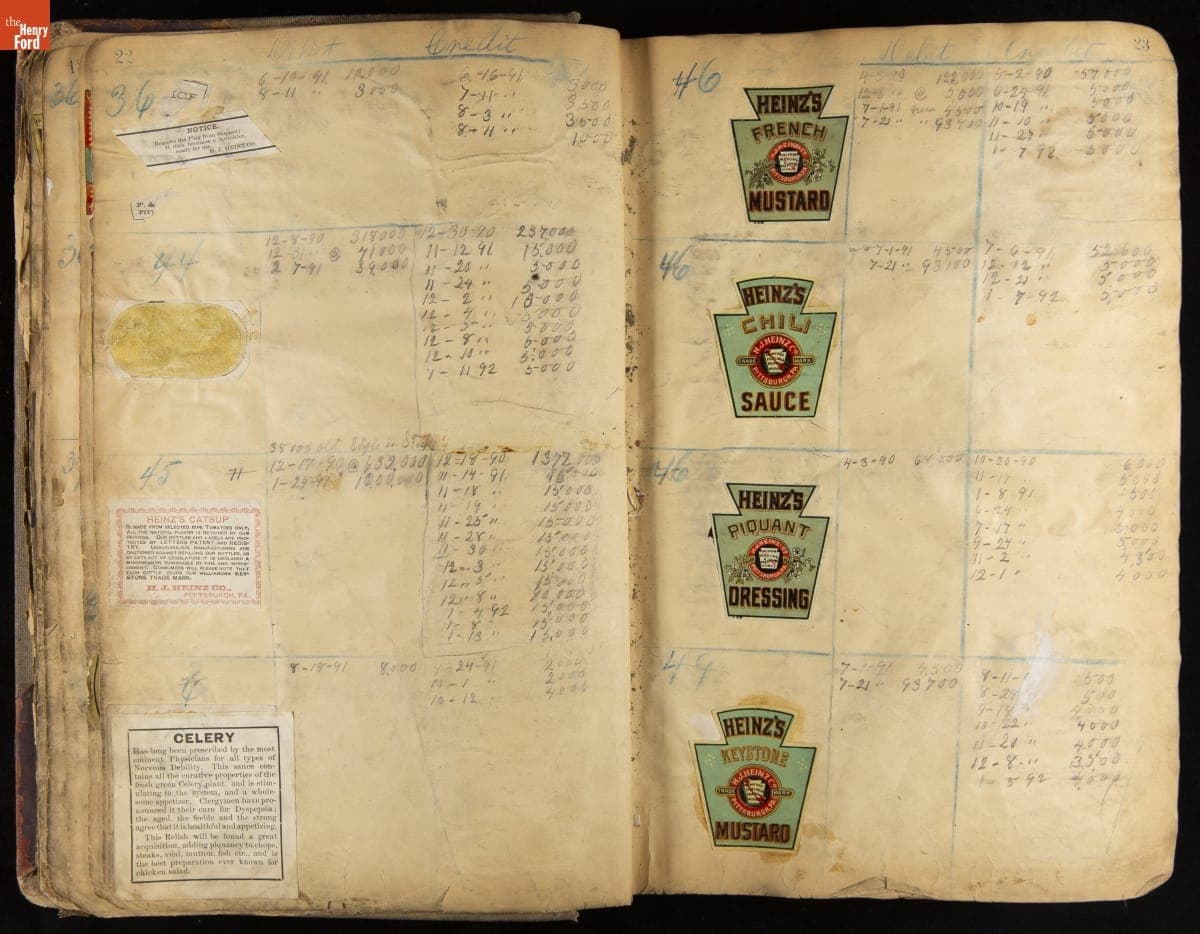 the
Henry
Ford
22
Debit
Credit
36
ICF
6-10-91 10,000
8-11 " 3000
6-16-91 3,000
7-11 " 3,500
8-3 " 3500
8-11 " 1000
NOTICE.
it then becomes a Sprinkler,
H. J. HEINZ CO.
P. &
PIT
44
12-8-90 318000
12-31 " @ 41000
2 7-91 39,000
12-30-90 237000
11-12 91 15.000
11-20 " 5.000
11-24 " 5.000
12-2 " 10-000
12-4 " 5.000
12-5 " 5.000
12-8 " 5.000
12-10 " 5.000
1-11 92 5000
45
12-17-90 @ 632,000
12-18-90 1372000
11-14-91
11-18 " 15.000
11-19 " 15.000
11-25 " 15.000
11-28 " 15.000
11-30 " 15.000
12-3 " 15.000
12-5 " 15.000
12-8 "
1-4 92 15.000
1-8 " 15.000
1-13 " 15,000
HEINZ'S CATSUP
IS MADE FROM SELECTED RIPE TOMATOES ONLY,
ALL THE NATURAL FLAVOR IS RETAINED BY OUR
PROCESS. OUR BOTTLES AND LABELS ARE PRO-
TECTED BY LETTERS PATENT AND REGIS-
TRY. UNSCRUPULOUS MANUFACTURERS ARE
CAUTIONED AGAINST REFILLING OUR BOTTLES, AS
BY LATE ACT OF LEGISLATURE IT IS DECLARED A
MISDEMEANOR, PUNISHABLE BY FINE AND IMPRIS-
ONMENT. CONSUMERS WILL PLEASE NOTE THAT
EACH BOTTLE BEARS OUR WELL-KNOWN KEY-
STONE TRADE MARK.
H. J. HEINZ CO.,
PITTSBURGH, PA.
8-18-91 8,000
9-24-91 2000
10-1 " 2000
10-12 " 4000
CELERY
Has long been prescribed by the most
eminent Physicians for all types of
Nervous Debility. This sauce con-
tains all the curative properties of the
fresh green Celery plant, and is stim-
ulating to the system, and a whole-
some appetizer. Clergymen have pro-
nounced it their cure for Dyspepsia;
the aged, the feeble and the strong
agree that it is healthful and appetizing.
This Relish will be found a great
acquisition, adding piquancy to chops,
steaks, veal, mutton, fish etc., and is
the best preparation ever known for
chicken salad.
23
Debit
Credit
46
HEINZ'S
FRENCH
H.J.HEINZ CO.
PITTSBURGH, PA.
MUSTARD
4-3-90 122,000
7-21 " 93700
5-2-90 57000
6-24-91 5.000
10-19 " 5000
11-10 " 5.000
11-27 " 5.000
1-7 92 5.000
46
HEINZ'S
CHILI
H.J.HEINZ CO.
TRADE MARK
PITTSBURGH, PA.
SAUCE
7-1-91 4500
7-21 " 93700
7-6-91 52600
12-12 " 5.000
12-21 " 5.000
1-7-92 5,000
46
HEINZ'S
PIQUANT
H.J.HEINZ CO.
PITTSBURGH, PA.
DRESSING
4-3-90 64000
10-20-90 6000
11-17 5000
1-8-91
6-24 "
7-17 "
9-24 " 5000
11-2 " 4300
12-1 " 4000
49
HEINZ'S
KEYSTONE
H.J.HEINZ CO.
TRADE MARK
PITTSBURGH, PA.
MUSTARD
7-1-91 4,500
7-21 " 93700
8-11
8-28
9-18
10-22 " 4000
11-20 " 4.000
12-8 " 3500
1-5 92 4,000